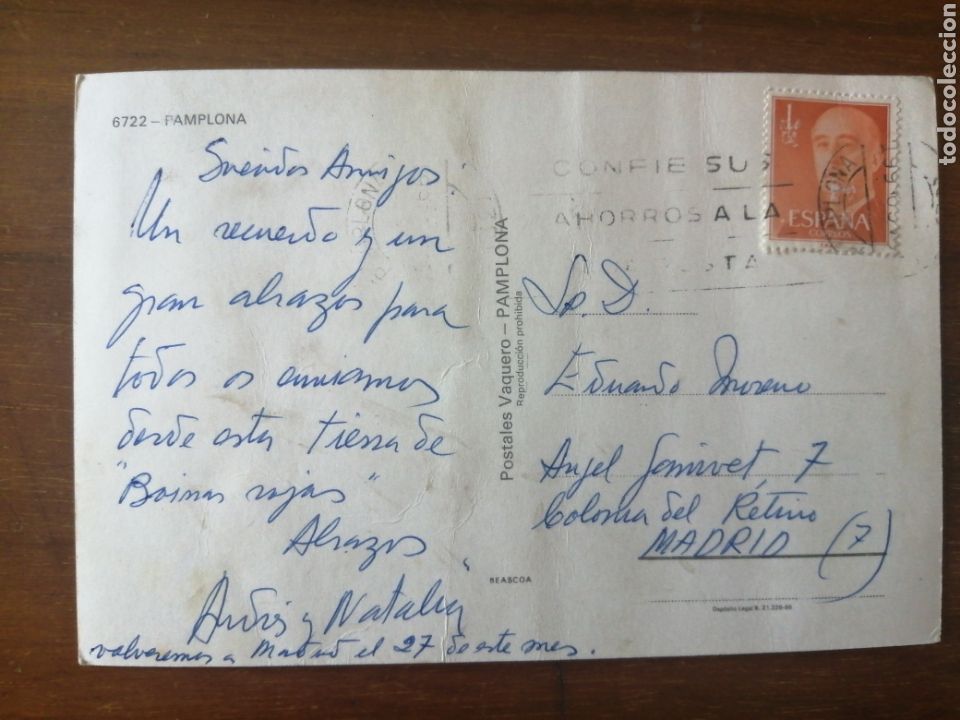 6722 – PAMPLONA
Queridos Amigos:
Un recuerdo y un
gran abrazos para
todos os enviamos
desde esta tierra de
"Boinas rojas"
Abrazos
y Natalia
volveremos a Madrid el 27 de este mes.
Postales Vaquero – PAMPLONA
Reproducción prohibida
BEASCOA
CONFIE SUS
AHORROS A LA
1 PTA
ESPAÑA
CORREOS
PAMPLONA
Sr. D.
Eduardo Moreno
Angel Ganivet 7
Colonia del Retiro
MADRID (7)
Depósito Legal B. 21.220-
todocoleccion